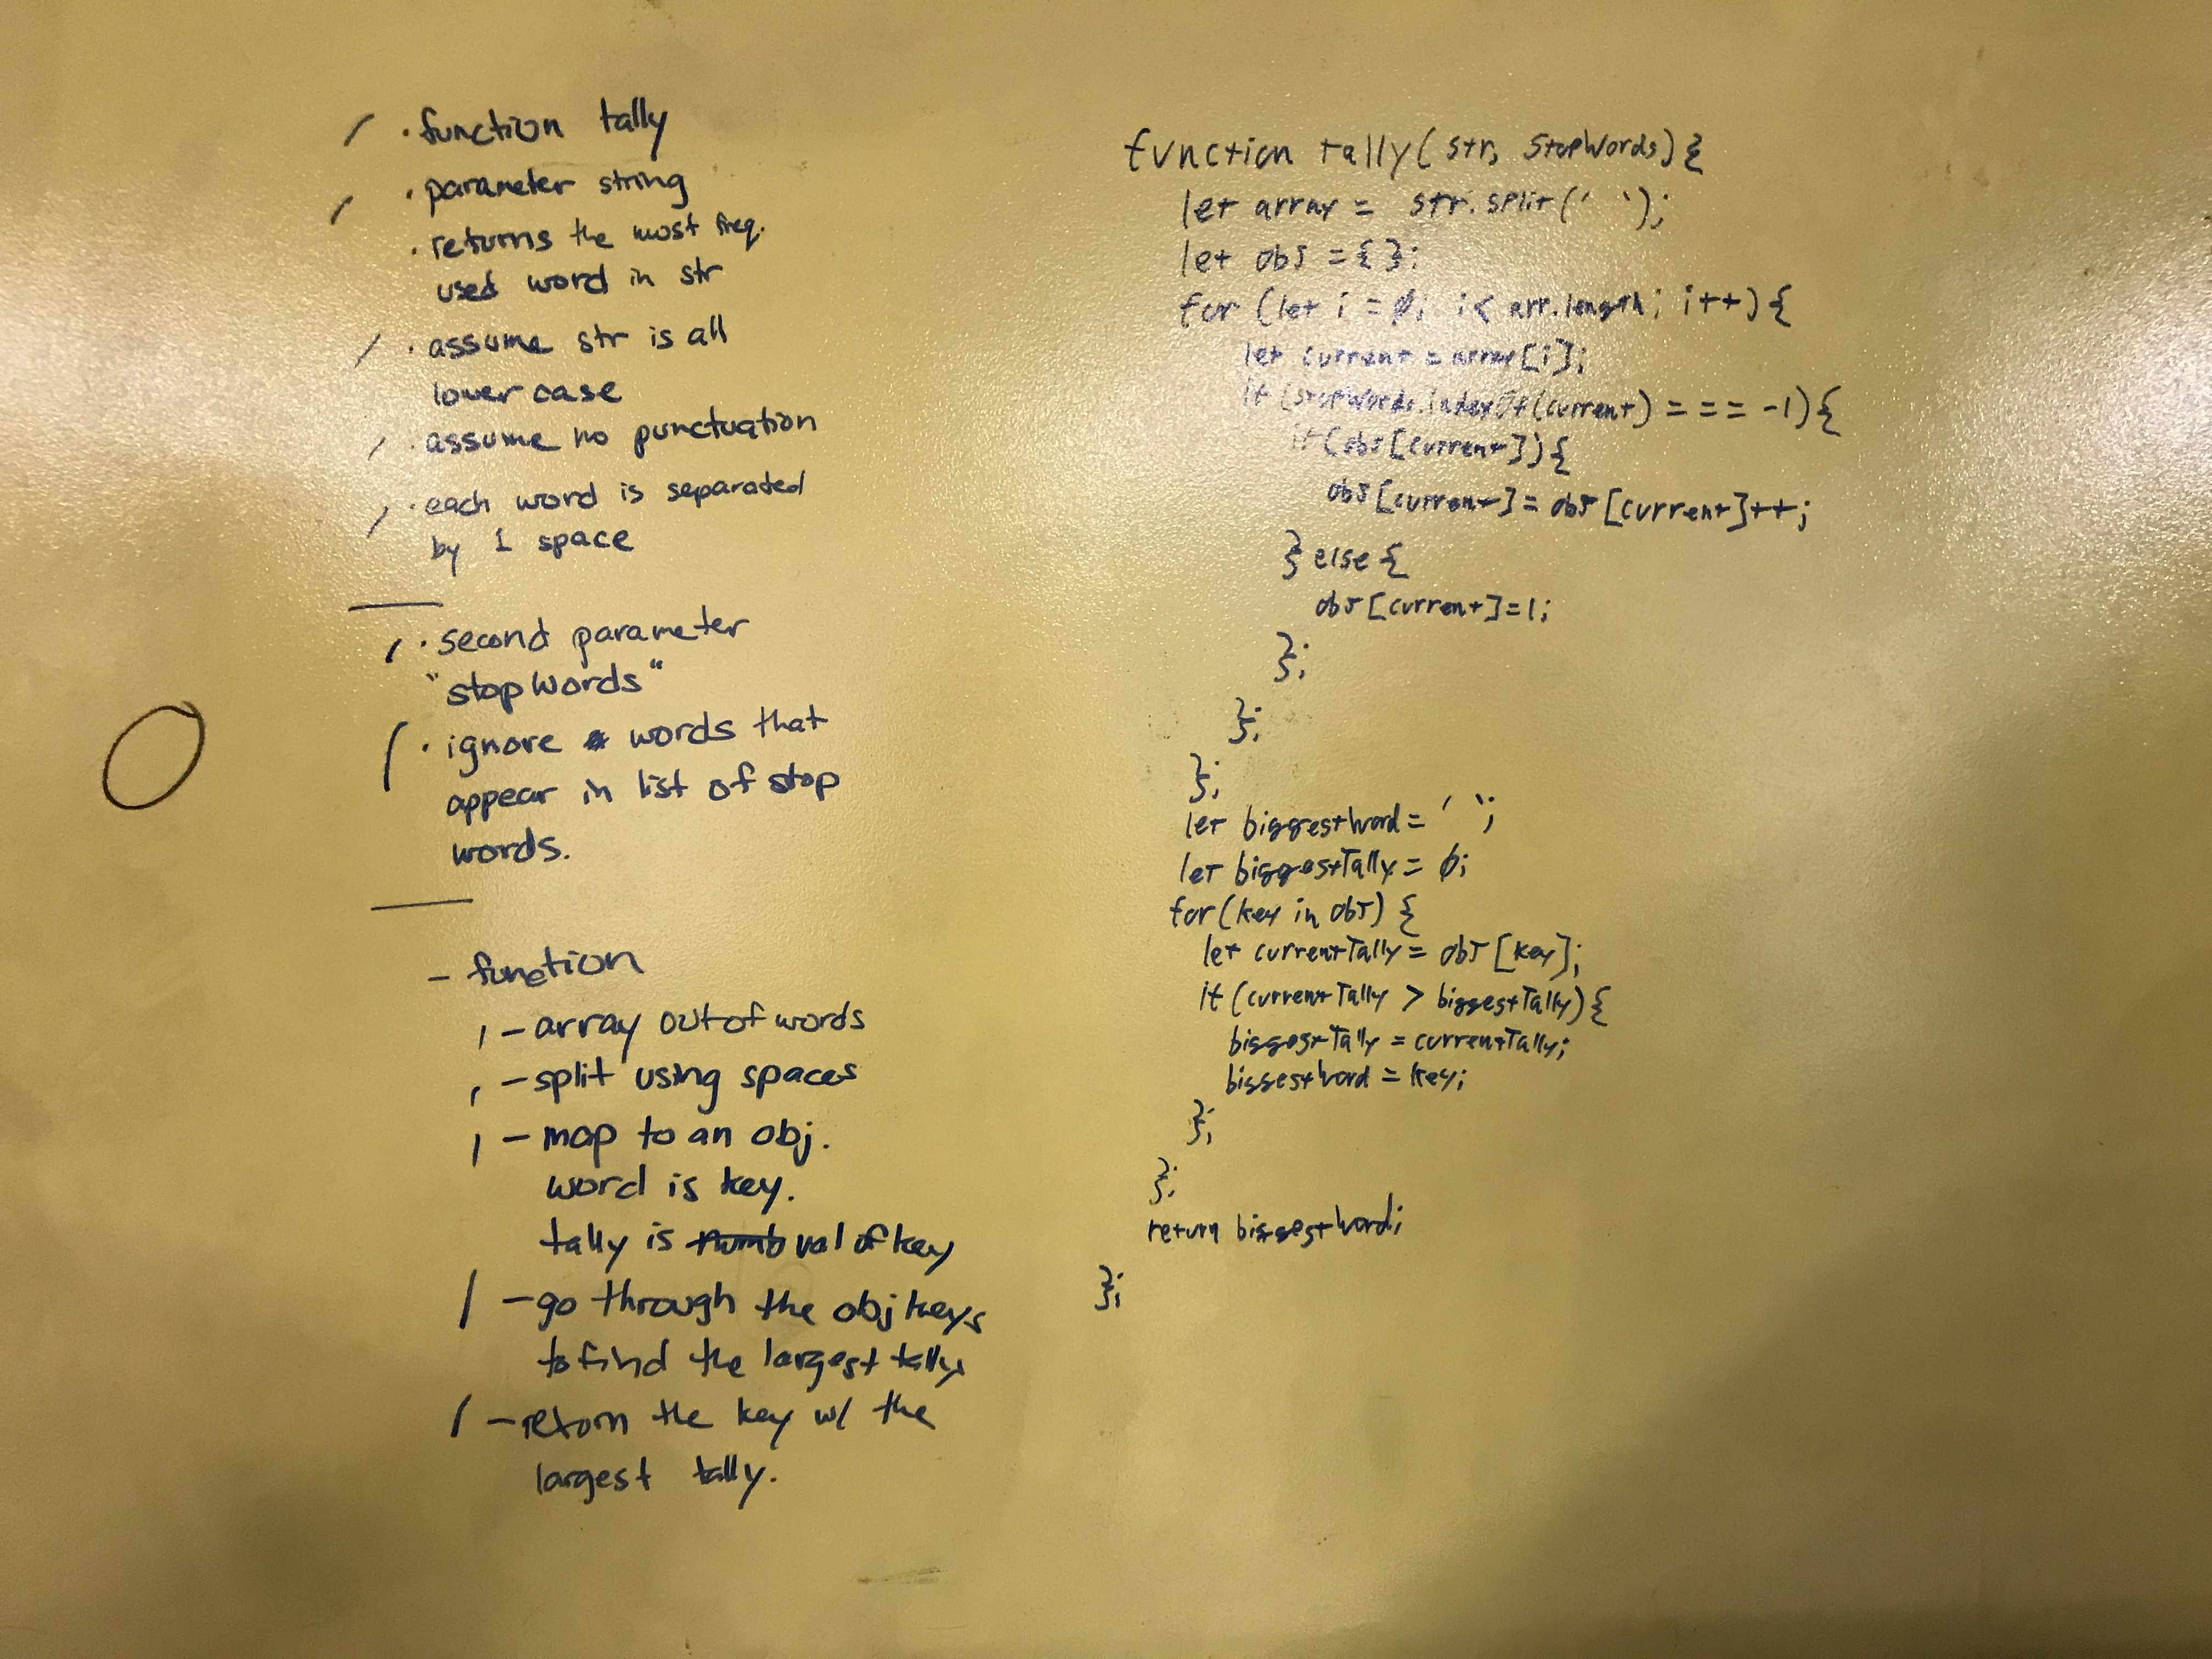 · function tally
· parameter string
· returns the most freq.
used word in str
· assume str is all
lower case
· assume no punctuation
· each word is separated
by 1 space
· second parameter
"stopWords"
· ignore words that
appear in list of stop
words.
- function
- array out of words
- split using spaces
- map to an obj.
word is key.
tally is numb val of key
- go through the obj keys
to find the largest tally
- return the key w/ the
largest tally.
function tally(str, stopWords){
let array = str.split(' ');
let obj = {};
for (let i = 0; i < arr.length; i++){
let current = array[i];
if (stopWords.indexOf(current) === -1){
if(obj[current]){
obj[current] = obj[current]++;
} else {
obj[current]=1;
};
};
};
let biggestWord = ' ';
let biggestTally = 0;
for(key in obj) {
let currentTally = obj[key];
if (currentTally > biggestTally){
biggestTally = currentTally;
biggestWord = key;
};
};
return biggestWord;
};